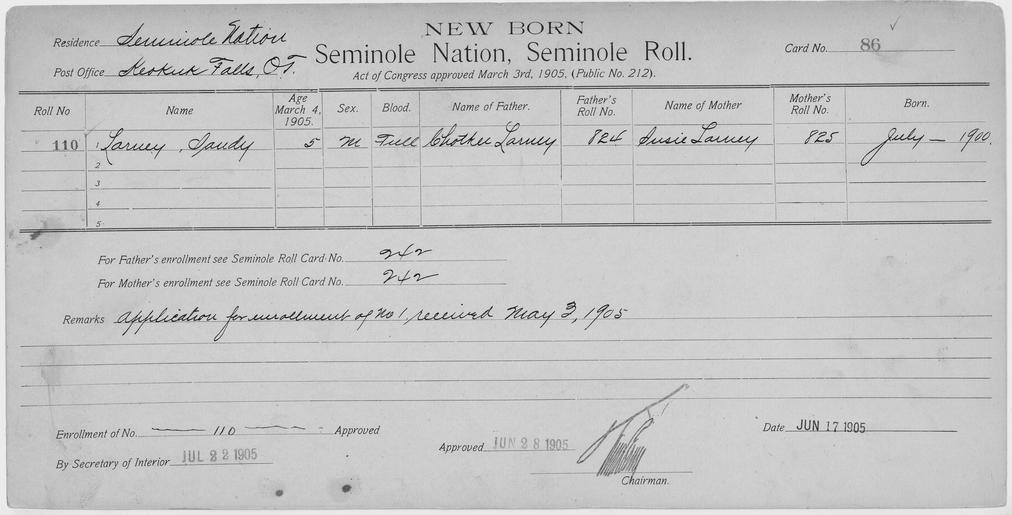 NEW BORN
Residence Seminole Nation
Seminole Nation, Seminole Roll.
Card No. 86
Post Office Keokuk Falls, O.T.
Act of Congress approved March 3rd, 1905, (Public No. 212).
Roll No Name Age March 4, 1905. Sex. Blood. Name of Father. Father's Roll No. Name of Mother Mother's Roll No. Born.
110 1 Larney, Sandy 5 M Full Chotkee Larney 824 Susie Larney 825 July — 1900.
2
3
4
5
For Father's enrollment see Seminole Roll Card No. 242
For Mother's enrollment see Seminole Roll Card No. 242
Remarks Application for enrollment of No 1, received May 3, 1905
Enrollment of No. 110 Approved
By Secretary of Interior JUL 22 1905
Approved JUN 28 1905
Chairman.
Date JUN 17 1905